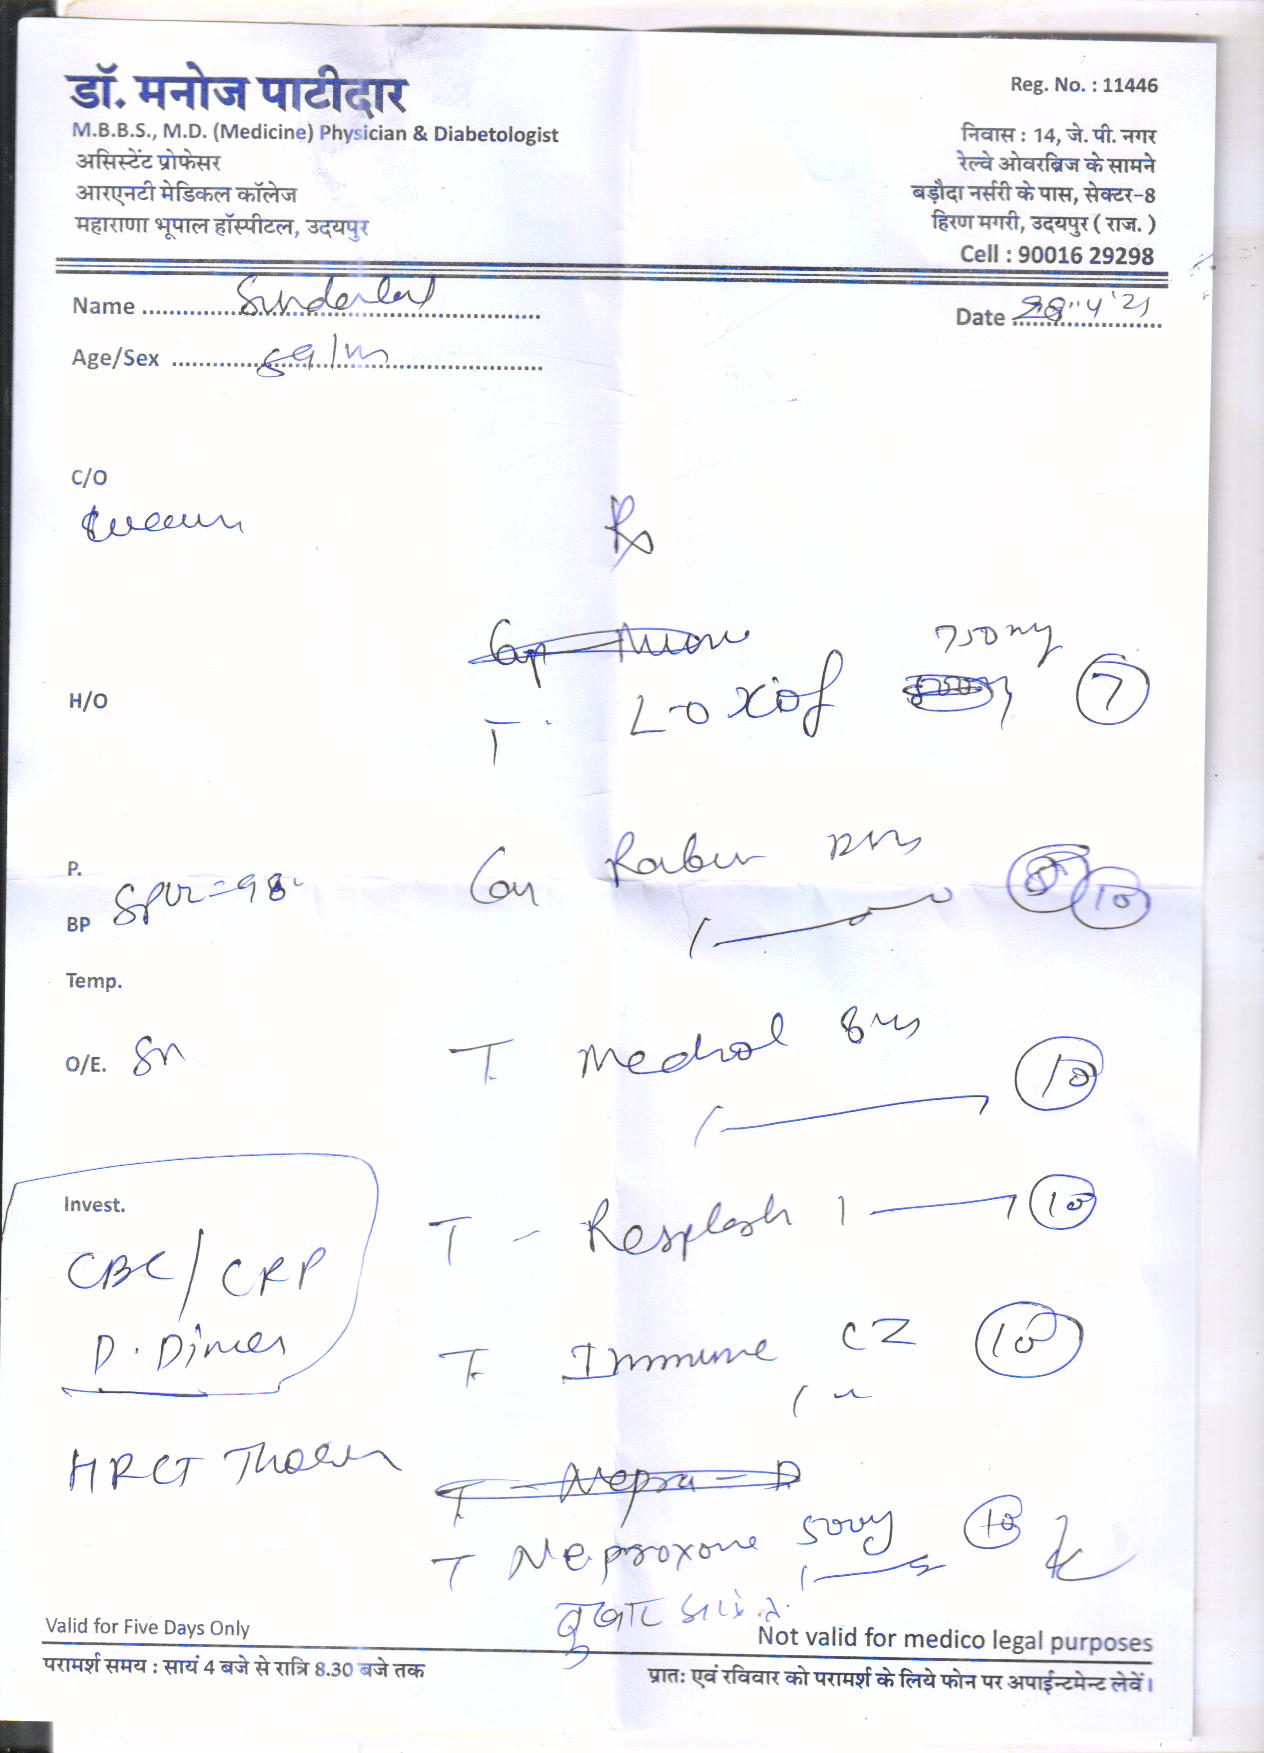 डॉ. मनोज पाटीदार
M.B.B.S., M.D. (Medicine) Physician & Diabetologist
असिस्टेंट प्रोफेसर
आरएनटी मेडिकल कॉलेज
महाराणा भूपाल हॉस्पीटल, उदयपुर
Reg. No. : 11446
निवास : 14, जे. पी. नगर
रेल्वे ओवरब्रिज के सामने
बड़ौदा नर्सरी के पास, सेक्टर-8
हिरण मगरी, उदयपुर ( राज. )
Cell : 90016 29298
Name Sunderlal
Date 28"4'21
Age/Sex /m
C/O
Rx
Cap
750mg
H/O
T. Loxof 7
P.
BP
Raber
10
Temp.
O/E.
T. Medrol 8mg 10
Invest.
CBC/CRP
D.Dimer
T - Resplash 1 10
T. Immune CZ 10
HRCT Thorax
T - Nepra - D
T Neproxone 500mg 10
बुखार
Valid for Five Days Only
Not valid for medico legal purposes
परामर्श समय : सायं 4 बजे से रात्रि 8.30 बजे तक
प्रातः एवं रविवार को परामर्श के लिये फोन पर अपाईन्टमेन्ट लेवें।